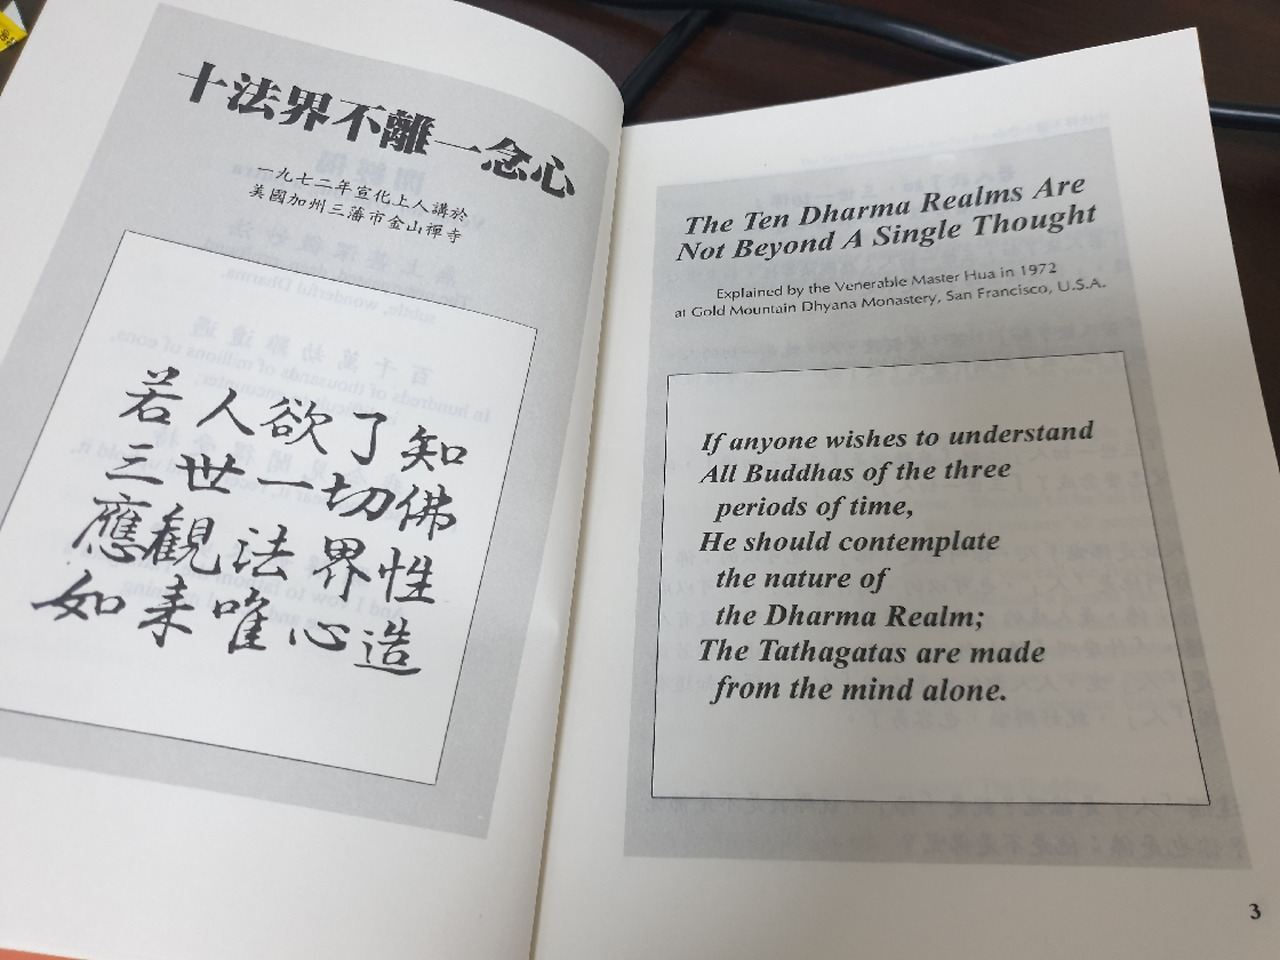 十法界不離一念心
一九七二年宣化上人講於
美國加州三藩市金山禪寺
若人欲了知
三世一切佛
應觀法界性
如来唯心造
The Ten Dharma Realms Are
Not Beyond A Single Thought
Explained by the Venerable Master Hua in 1972
at Gold Mountain Dhyana Monastery, San Francisco, U.S.A.
If anyone wishes to understand
All Buddhas of the three
periods of time,
He should contemplate
the nature of
the Dharma Realm;
The Tathagatas are made
from the mind alone.
3